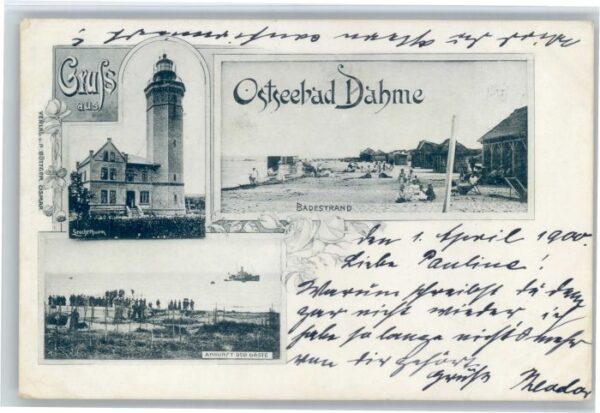 Gruß
aus
Ostseebad Dahme
Leuchtthurm
BADESTRAND
ANKUNFT DER GÄSTE
den 1. April 1900.
Liebe Pauline!
Warum schreibst du denn
gar nicht wieder ich
habe so lange nichts mehr
von dir gehört
Gruß Theodor